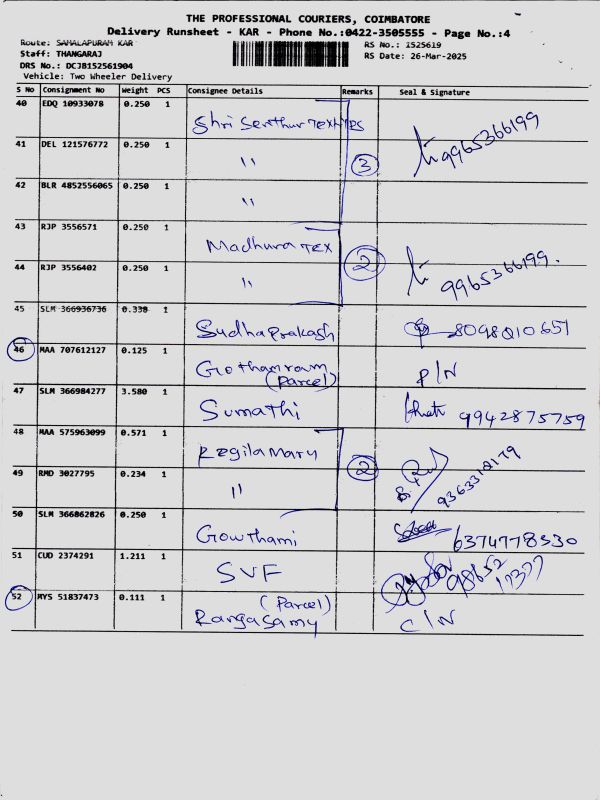 THE PROFESSIONAL COURIERS, COIMBATORE
Delivery Runsheet - KAR - Phone No.:0422-3505555 - Page No.:4
Route: SAHALAPURAM KAR
Staff: THANGARAJ
DRS No.: DCJB152561904
Vehicle: Two Wheeler Delivery
RS No.: 1525619
RS Date: 26-Mar-2025
S No Consignment No Weight PCS Consignee Details Remarks Seal & Signature
40 EDQ 10933078 0.250 1 Shri Senthur TEXTILES
41 DEL 121576772 0.250 1 " 3 9965366199
42 BLR 4852556065 0.250 1 "
43 RJP 3556571 0.250 1 Madhura TEX 2
44 RJP 3556402 0.250 1 " 9965366199.
45 SLM 366936736 0.338 1 Sudhaprakash 8098210651
46 MAA 707612127 0.125 1 Gothamram (Parcel) P/N
47 SLM 366984277 3.580 1 Sumathi 9942875759
48 MAA 575963099 0.571 1 Regila Mary 2
49 RMD 3027795 0.234 1 " 9363312179
50 SLM 366862826 0.250 1 Gowthami 6374778330
51 CUD 2374291 1.211 1 SVF 98652 17377
52 MYS 51837473 0.111 1 (Parcel) Rangasamy C/N